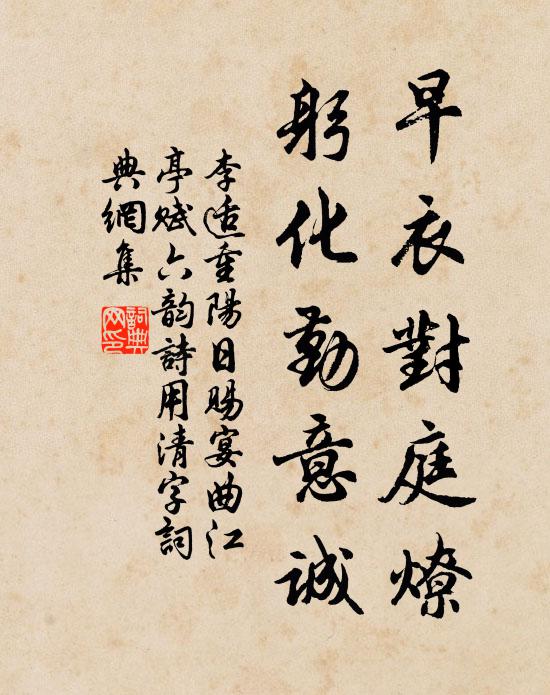 早衣對庭燎
躬化勤意誠
李适重陽日賜宴曲江
亭賦六韵詩用清字詞
典網集
詞典網印